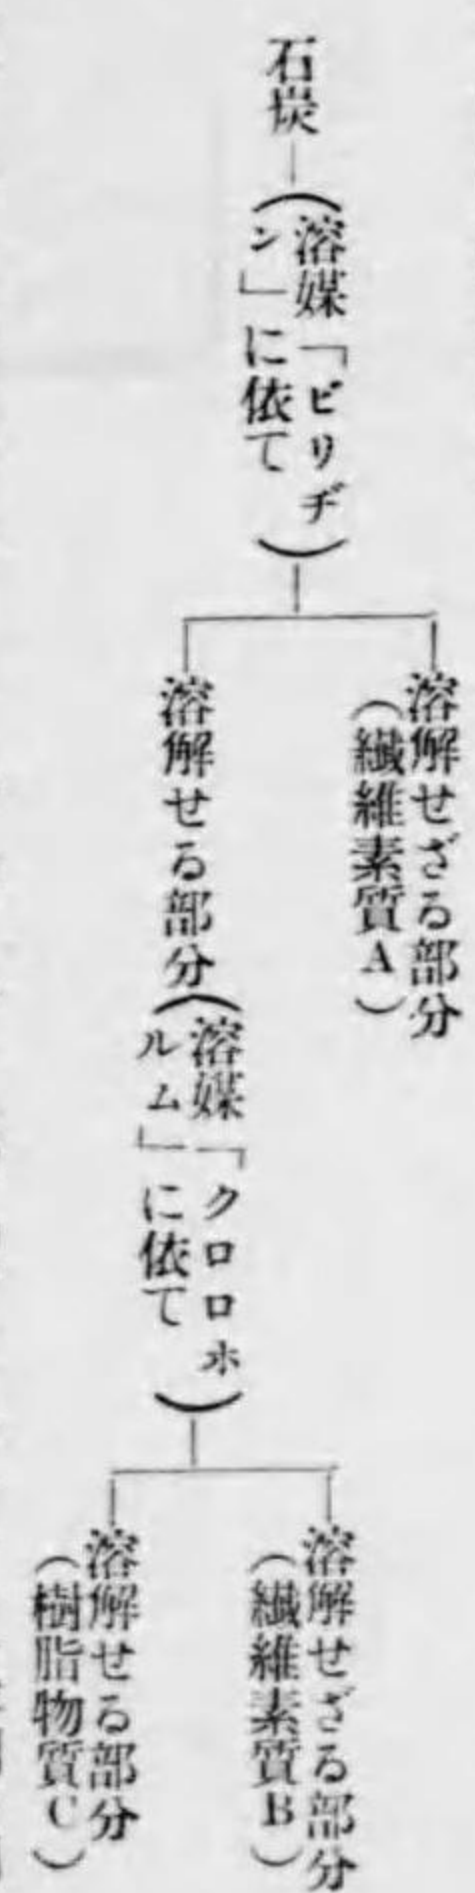 石炭
(溶媒「ピリヂ
ン」に依て)
溶解せざる部分
(繊維素質A)
溶解せる部分
(溶媒「クロロホ
ルム」に依て)
溶解せざる部分
(繊維素質B)
溶解せる部分
(樹脂物質C)